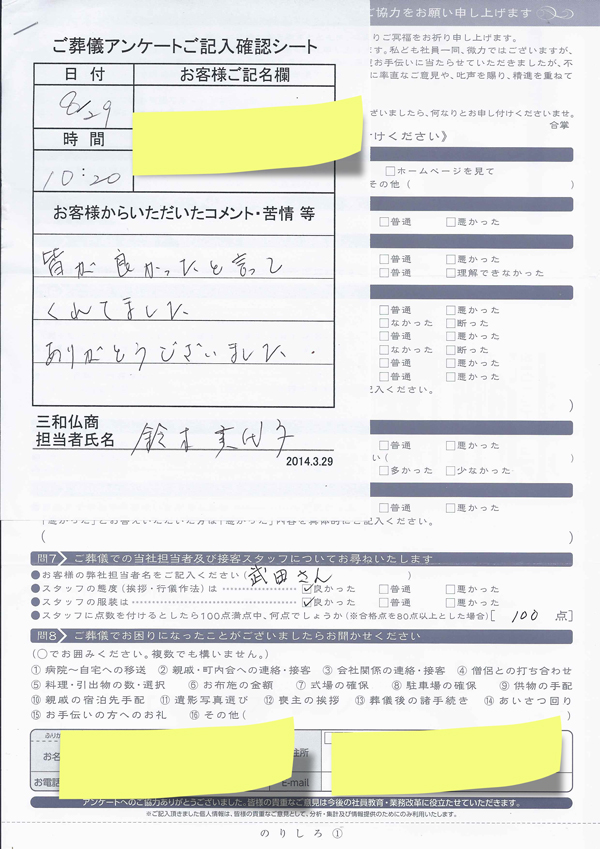 ご協力をお願い申し上げます
ご葬儀アンケートご記入確認シート
日付
お客様ご記名欄
8/29
時間
10:20
お客様からいただいたコメント・苦情 等
皆が良かったと言って
くれてました
ありがとうございました.
三和仏商
担当者氏名
鈴木実代子
2014.3.29
りご冥福をお祈り申し上げます。
す。私ども社員一同、微力ではございますが、
お手伝いに当たらせていただきましたが、不
に率直なご意見や、叱声を賜り、精進を重ねて
ざいましたら、何なりとお申し付けくださいませ。
合掌
付けください》
□ホームページを見て
その他( )
□普通 □悪かった
□普通 □悪かった
□普通 □理解できなかった
□普通 □悪かった
□なかった □断った
□普通 □悪かった
□なかった □断った
□普通 □悪かった
□普通 □悪かった
記入ください。
)
□普通 □悪かった
い( )
□多かった □少なかった
□普通 □悪かった
「悪かった」とお答えいただいた方は「悪かった」内容を具体的にご記入ください。
( )
問7 ご葬儀での当社担当者及び接客スタッフについてお尋ねいたします
●お客様の弊社担当者名をご記入ください(武田さん )
●スタッフの態度(挨拶・行儀作法)は ☑良かった □普通 □悪かった
●スタッフの服装は ☑良かった □普通 □悪かった
●スタッフに点数を付けるとしたら100点満点中、何点でしょうか(※合格点を80点以上とした場合)[ 100 点]
問8 ご葬儀でお困りになったことがございましたらお聞かせください
(○でお囲みください。複数でも構いません。)
①病院〜自宅への移送 ②親戚・町内会への連絡・接客 ③会社関係の連絡・接客 ④僧侶との打ち合わせ
⑤料理・引出物の数・選択 ⑥お布施の金額 ⑦式場の確保 ⑧駐車場の確保 ⑨供物の手配
⑩親戚の宿泊先手配 ⑪遺影写真選び ⑫喪主の挨拶 ⑬葬儀後の諸手続き ⑭あいさつ回り
⑮お手伝いの方へのお礼 ⑯その他( )
ふり
お名
住所
お電話
E-mail
アンケートへのご協力ありがとうございました。皆様の貴重なご意見は今後の社員教育・業務改革に役立たせていただきます。
※ご記入頂きました個人情報は、皆様の貴重なご意見として、分析・集計及び情報提供のためにのみ利用いたします。
のりしろ①